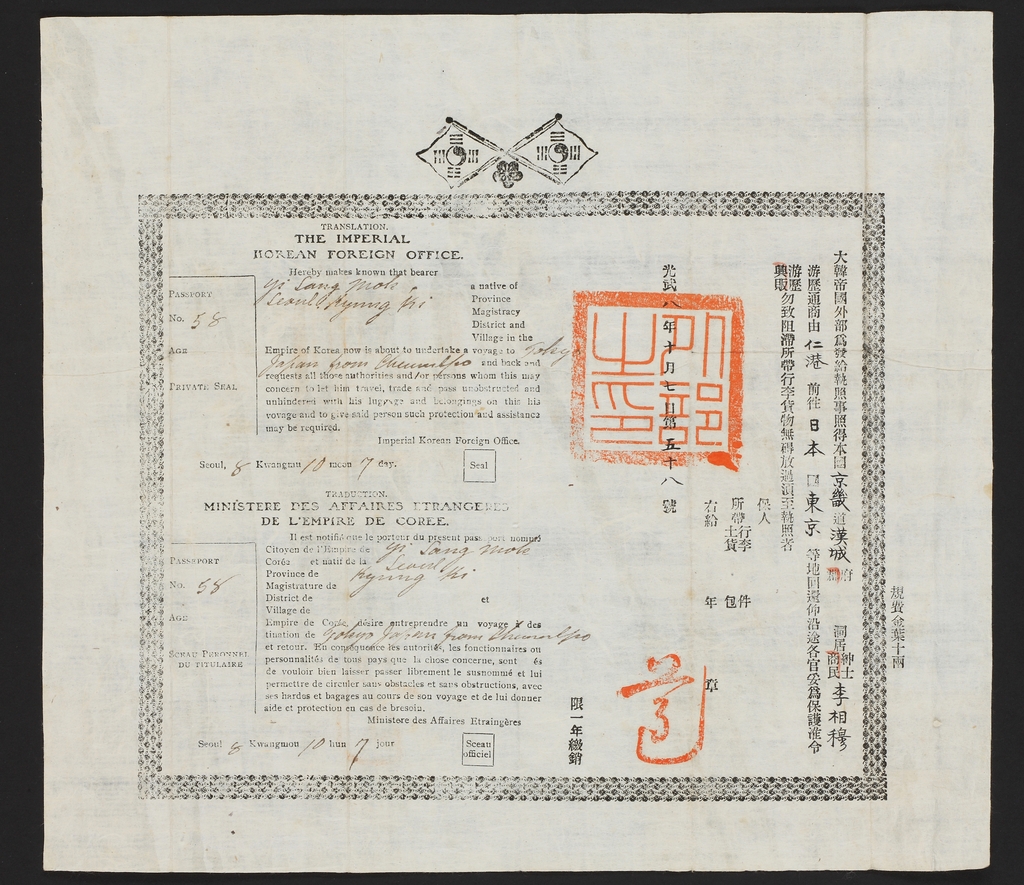 大韓帝國外部爲發給執照事照得本国京畿道漢城府洞居紳士商民李相穆
游歷通商由仁港前往日本国東京等地回還仰沿途各官妥爲保護准令
游歷興販勿致阻滯所帶行李貨物無碍放過須至執照者
保人
所帶行李土貨 包件
右給 年 章
光武八年十月七日第五十八號
限一年繳銷
規費金葉十兩
外部之印
TRANSLATION.
THE IMPERIAL
KOREAN FOREIGN OFFICE.
PASSPORT
No. 58
AGE
PRIVATE SEAL
Hereby makes known that bearer
Yi Sang Mok a native of
Seoul Kyung Ki Province
Magistracy
District and
Village in the
Empire of Korea now is about to undertake a voyage to Tokyo
Japan from Chemulpo and back and
requests all those authorities and/or persons whom this may
concern to let him travel, trade and pass unobstructed and
unhindered with his luggage and belongings on this his
voyage and to give said person such protection and assistance
may be required.
Imperial Korean Foreign Office.
Seoul, 8 Kwangmu 10 moon 7 day.
Seal
TRADUCTION.
MINISTERE DES AFFAIRES ETRANGERES
DE L'EMPIRE DE COREE.
PASSEPORT
No. 58
AGE
SCEAU PERONNEL
DU TITULAIRE
Il est notifié que le porteur du present passeport nommé
Citoyen de l'Empire de Yi Sang Mok
Coréz et natif de la Seoul
Province de Kyung Ki
Magistrature de
District de et
Village de
Empire de Corée désire entreprendre un voyage à des
tination de Tokyo Japan from Chemulpo
et retour. En conséquence les autorités, les fonctionnaires ou
personnalités de tous pays que la chose concerne, sont és
de vouloir bien laisser passer librement le susnommé et lui
permettre de circuler sans obstacles et sans obstructions, avec
ses hardes et bagages au cours de son voyage et de lui donner
aide et protection en cas de bresoin.
Ministere des Affaires Etraingères
Seoul 8 Kwangmou 10 hun 7 jour
Sceau
officiel